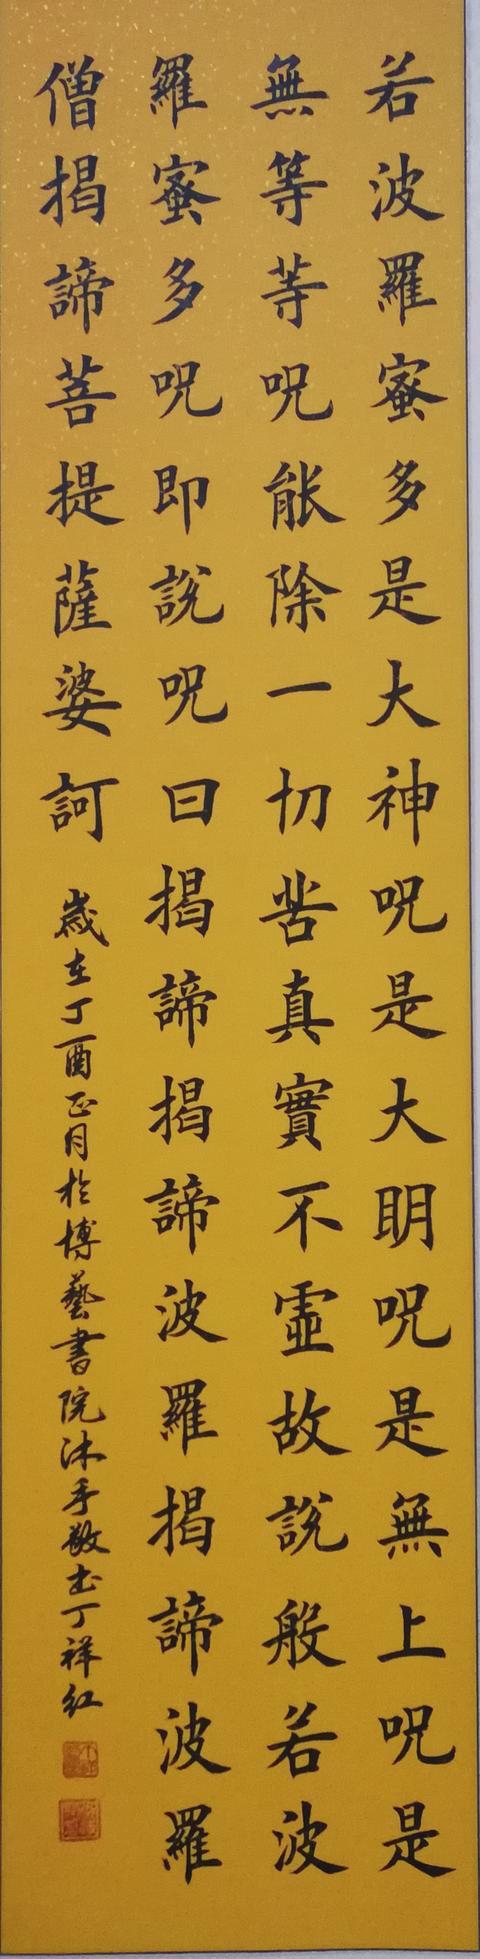 若波羅蜜多是大神呪是大明呪是無上呪是
無等等呪能除一切苦真實不虛故說般若波
羅蜜多呪即說呪曰揭諦揭諦波羅揭諦波羅
僧揭諦菩提薩婆訶
歲在丁酉正月於博藝書院沐手敬書丁祥紅